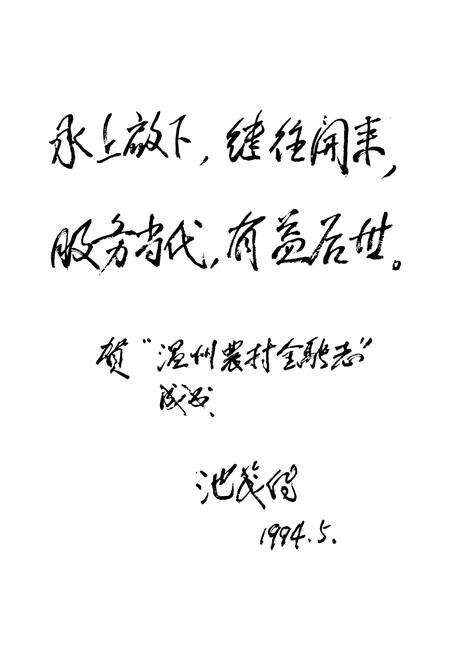 承上启下，继往开来，
服务当代，有益后世。
贺“温州農村金融志”
成书
池茂得
1994.5.